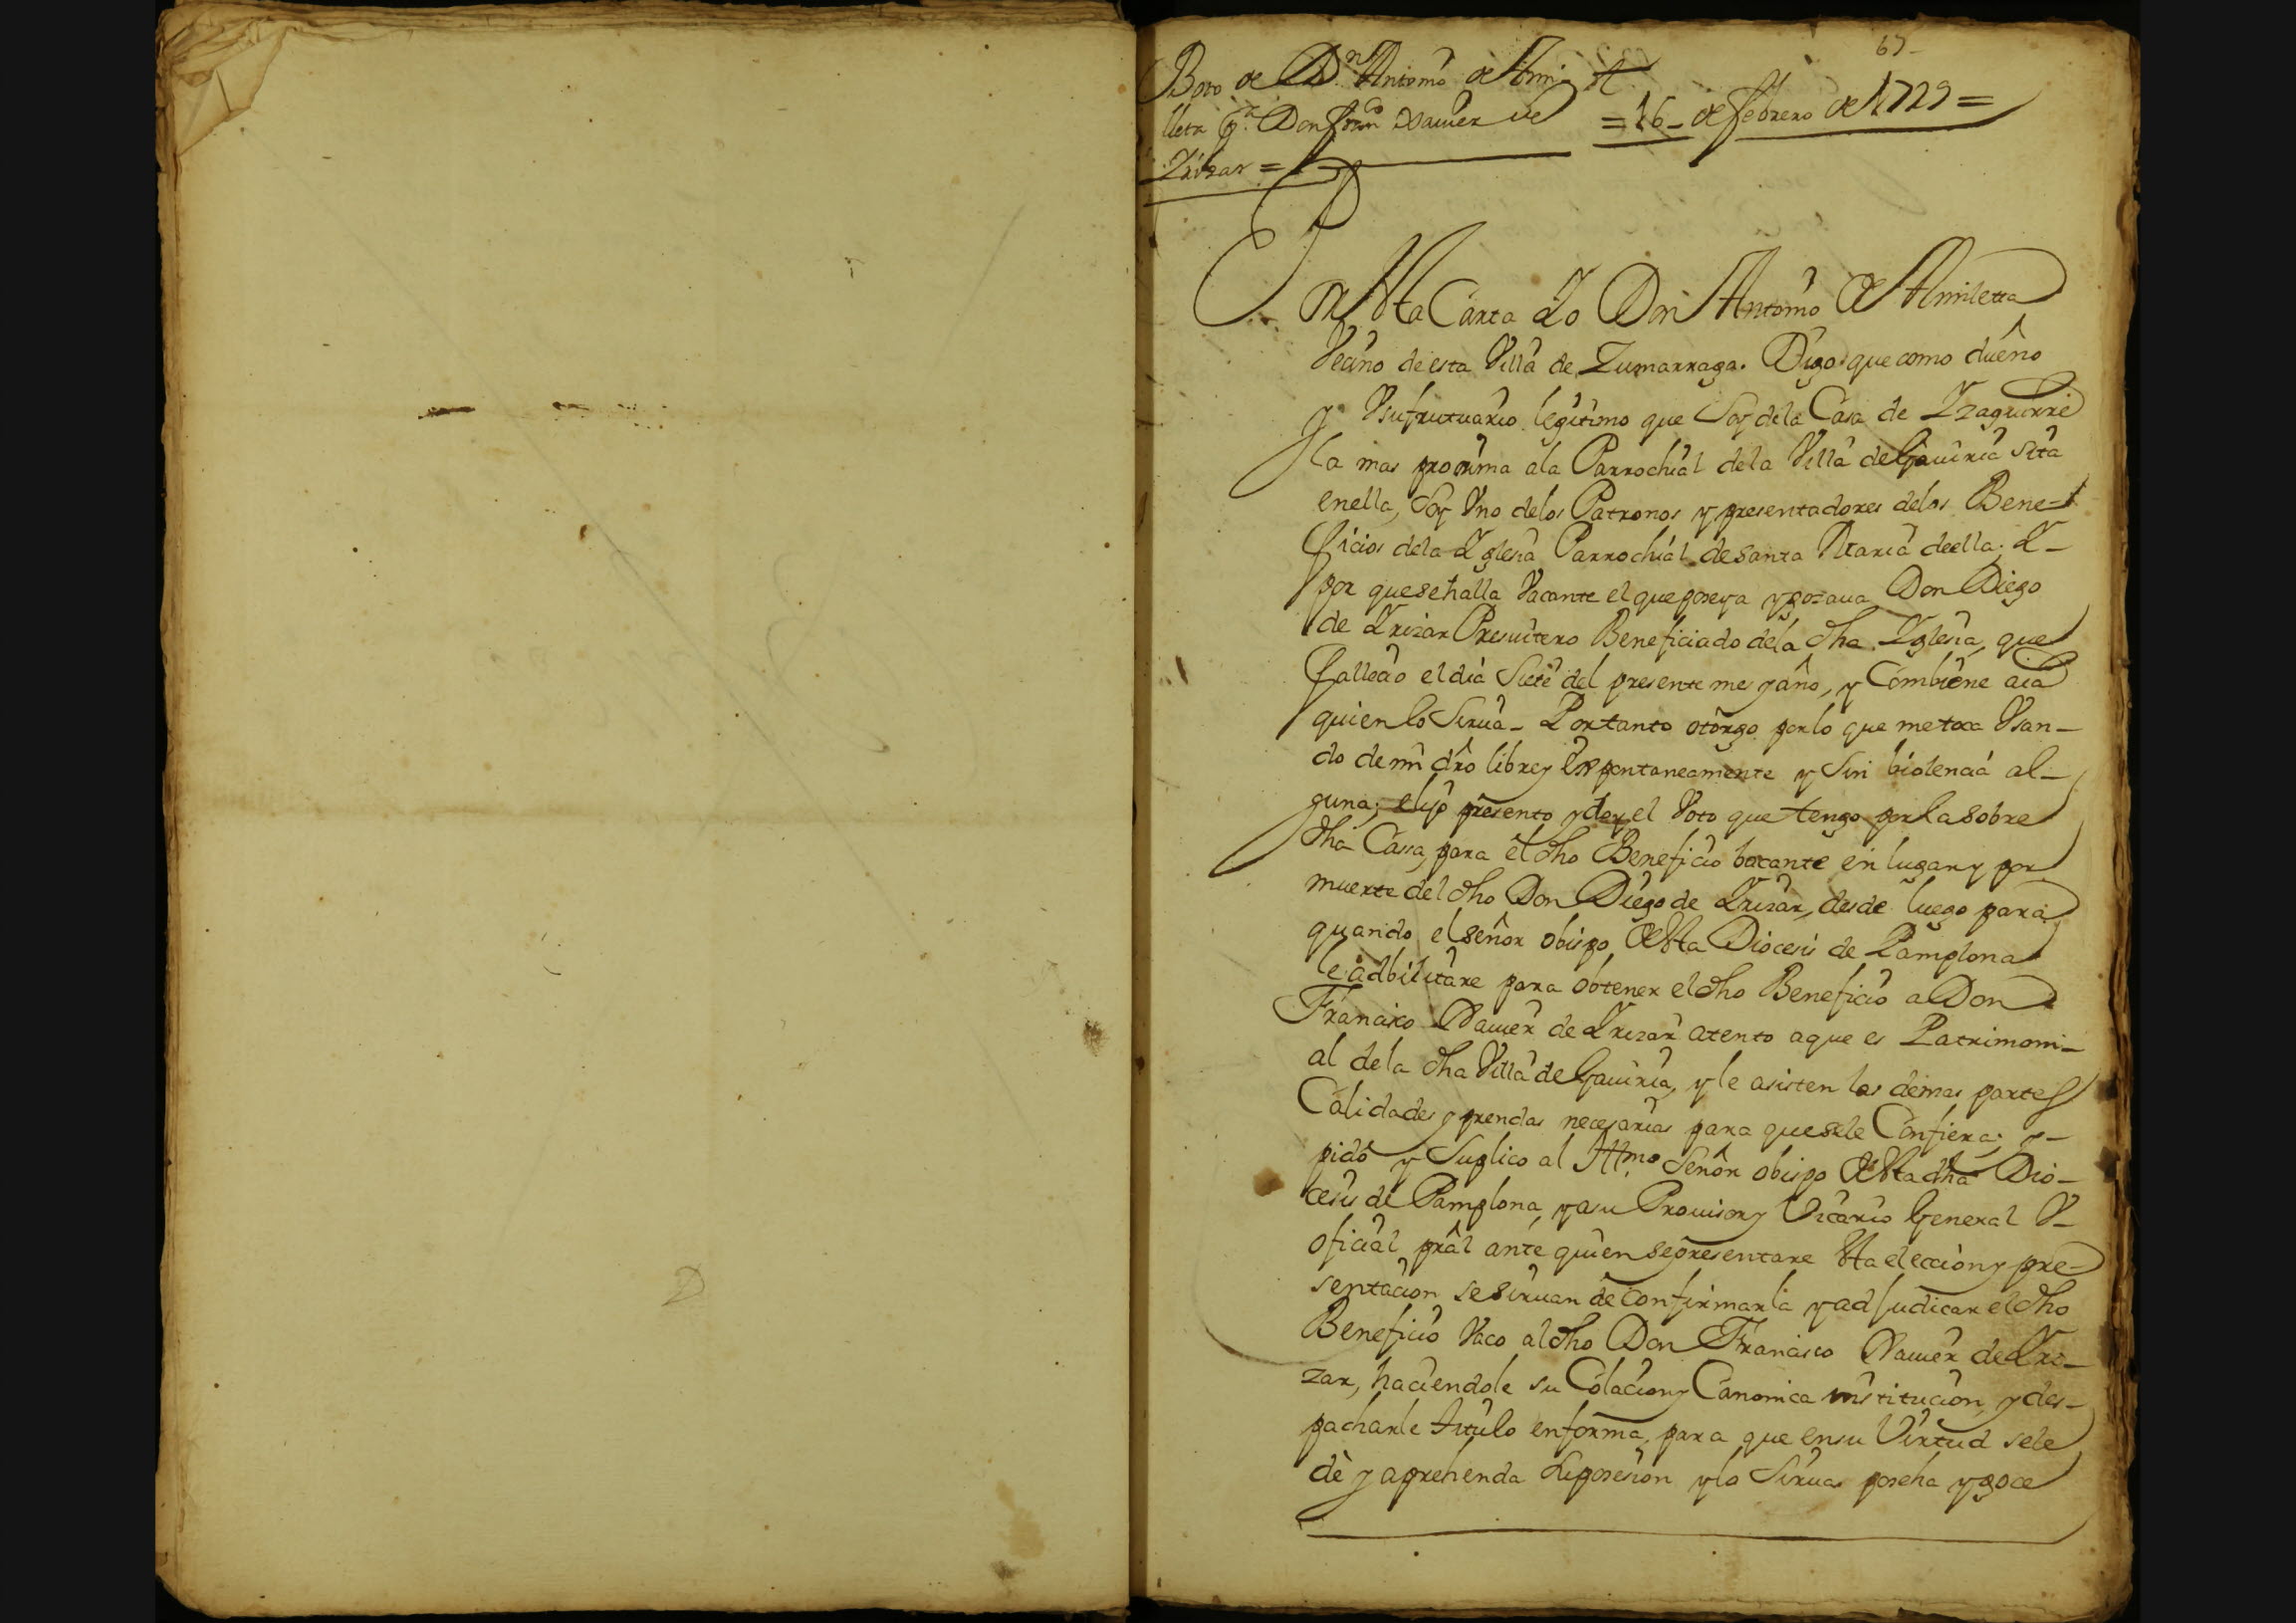 67
Boto de Dn. Antonio de Almi
lleta pa. Don franco Xauier de
Yrizar =
= 16 - de febrero de 1729 =
En esta Carta Yo Don Antonio de Almiletta
Vecino de esta Villa de Zumarraga. Digo que como dueño
y Vsufrutuario legitimo que Soy dela Casa de Yzaguirre
la mas proxima ala Parrochial dela Villa de Gauiria sita
enella, Soy Vno delos Patronos y presentadores delos Bene-
ficios dela Yglesia Parrochial de Santa Maria deella; Y-
por quesehalla Vacante el que poseya ygozaua Don Diego
de Yrizar Presuitero Beneficiado dela dha Yglesia, que
fallecio el dia Siete del presente mes y año, y Combiene aia
quien lo Sirua - Portanto otorgo por lo que me toca Vsan-
do de mi dro libre y Expontaneamente y Sin biolencia al-
guna; elijo presento y doy el Voto que tengo por la sobre
dha Cassa, para el dho Beneficio bacante en lugar y por
muerte del dho Don Diego de Yrizar, desde luego para
quando el señor obispo desta Diocesis de Pamplona
le adbilitare para obtener el dho Beneficio a Don
Francisco Xauier de Yrizar atento a que es Patrimoni-
al dela dha Villa de Gauiria, y le asisten las demas partes
Calidades y prendas necesarias para que se le Confiera; y-
pido y Suplico al Illmo. Señor obispo desta dha Dio-
cesis de Pamplona, y asu Prouisor y Vicario General V-
oficial pral ante quien sepresentare esta eleccion y pre-
sentacion se siruan de confirmarla y adjudicar el dho
Beneficio Vaco al dho Don Francisco Xauier de Yri-
zar, haciendole su Colacion y Canonica institucion, y des-
pacharle titulo en forma, para que ensu Virtud sele
dè y aprehenda la posesion y lo Sirua, poseha y goce